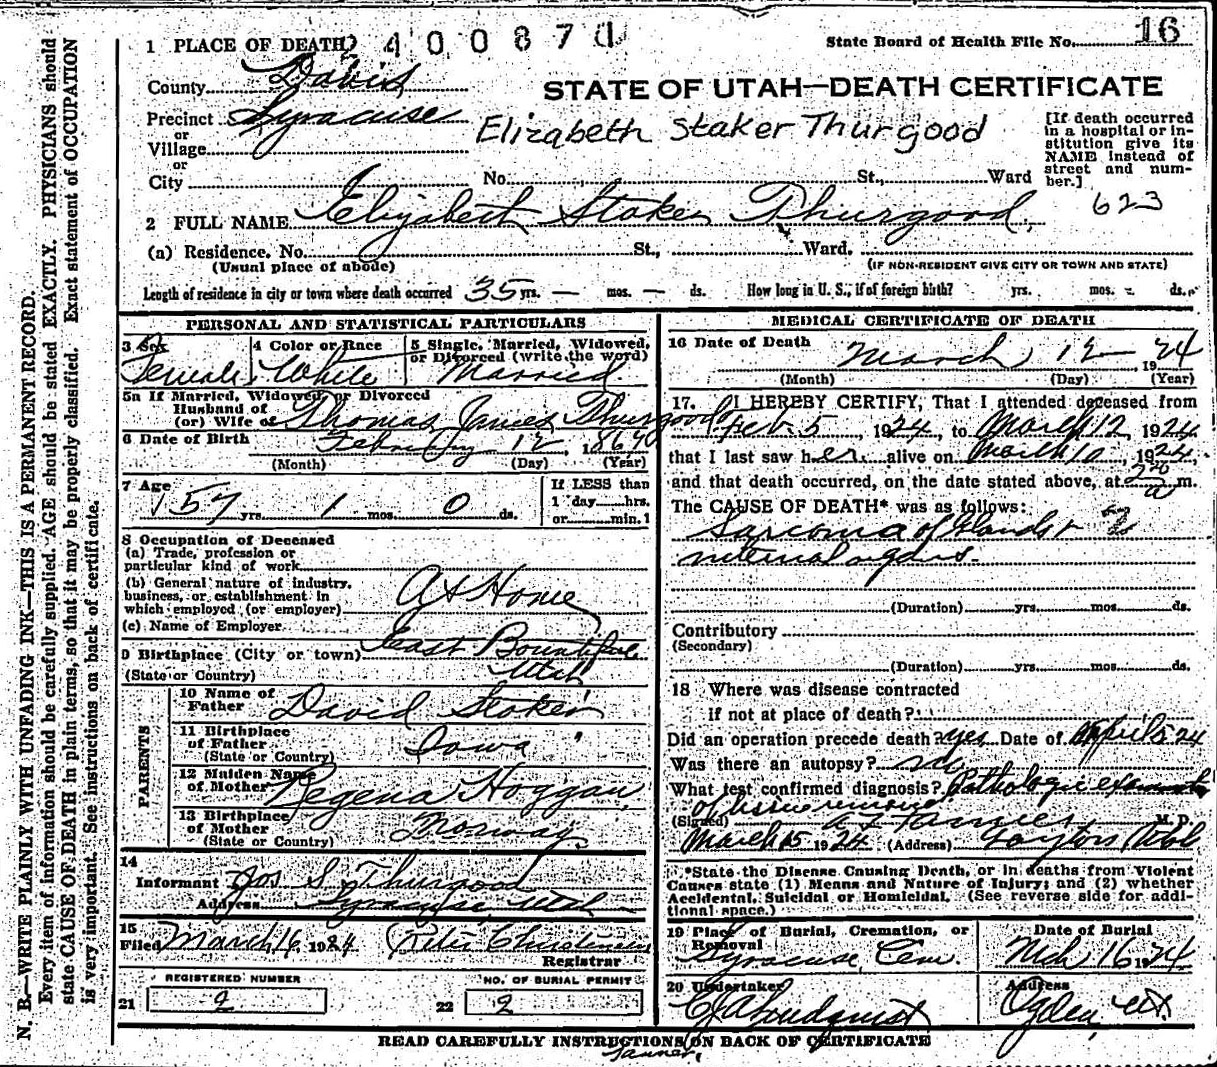 16
1 PLACE OF DEATH 2400870
State Board of Health File No.
County Davis
STATE OF UTAH—DEATH CERTIFICATE
Precinct Syracuse
Elizabeth Staker Thurgood
[If death occurred in a hospital or institution give its NAME instead of street and number.]
or
Village
or
City No. St., Ward
623
2 FULL NAME Elizabeth Staker Thurgood
(a) Residence. No. St., Ward.
(Usual place of abode) (IF NON-RESIDENT GIVE CITY OR TOWN AND STATE)
Length of residence in city or town where death occurred 35 yrs. — mos. — ds. How long in U. S., if of foreign birth? yrs. mos. ds.
PERSONAL AND STATISTICAL PARTICULARS
3 Sex 4 Color or Race 5 Single, Married, Widowed, or Divorced (write the word)
Female White Married
5a If Married, Widowed, or Divorced
Husband of
(or) Wife of Thomas James Thurgood
6 Date of Birth February 12, 186
(Month) (Day) (Year)
7 Age If LESS than
57 yrs. 1 mos. 0 ds. 1 day hrs.
or min. ?
8 Occupation of Deceased
(a) Trade, profession or
particular kind of work
(b) General nature of industry,
business, or establishment in
which employed (or employer) At Home
(c) Name of Employer
9 Birthplace (City or town) East Bountiful
(State or Country) Utah
PARENTS
10 Name of
Father David Staker
11 Birthplace
of Father Iowa
(State or Country)
12 Maiden Name
of Mother Regena Hoggan
13 Birthplace
of Mother Norway
(State or Country)
14
Informant Jos S. Thurgood
Address Syracuse Utah
15
Filed March 16, 1924 Peter Christensen
Registrar
REGISTERED NUMBER NO. OF BURIAL PERMIT
21 2 22 2
MEDICAL CERTIFICATE OF DEATH
16 Date of Death
March 12 1924
(Month) (Day) (Year)
17. I HEREBY CERTIFY, That I attended deceased from
Feb 5, 1924, to March 12, 1924
that I last saw her alive on March 10, 1924,
and that death occurred, on the date stated above, at a m.
The CAUSE OF DEATH* was as follows:
Sarcoma of Glands +
internal organs.
(Duration) yrs. mos. ds.
Contributory
(Secondary)
(Duration) yrs. mos. ds.
18 Where was disease contracted
if not at place of death?
Did an operation precede death? yes Date of April 5 24
Was there an autopsy? no
What test confirmed diagnosis? Pathologic
of tissue
(Signed) Tanner M. D.
March 15 1924 (Address) Layton Utah
*State the Disease Causing Death, or in deaths from Violent
Causes state (1) Means and Nature of Injury; and (2) whether
Accidental, Suicidal or Homicidal. (See reverse side for additional space.)
19 Place of Burial, Cremation, or Removal Date of Burial
Syracuse Cem. Mch 16 1924
20 Undertaker Address
Lindquist Ogden, Ut.
READ CAREFULLY INSTRUCTIONS ON BACK OF CERTIFICATE
Tanner.
N. B.—WRITE PLAINLY WITH UNFADING INK—THIS IS A PERMANENT RECORD.
Every item of information should be carefully supplied. AGE should be stated EXACTLY. PHYSICIANS should
state CAUSE OF DEATH in plain terms, so that it may be properly classified. Exact statement of OCCUPATION
is very important. See instructions on back of certificate.